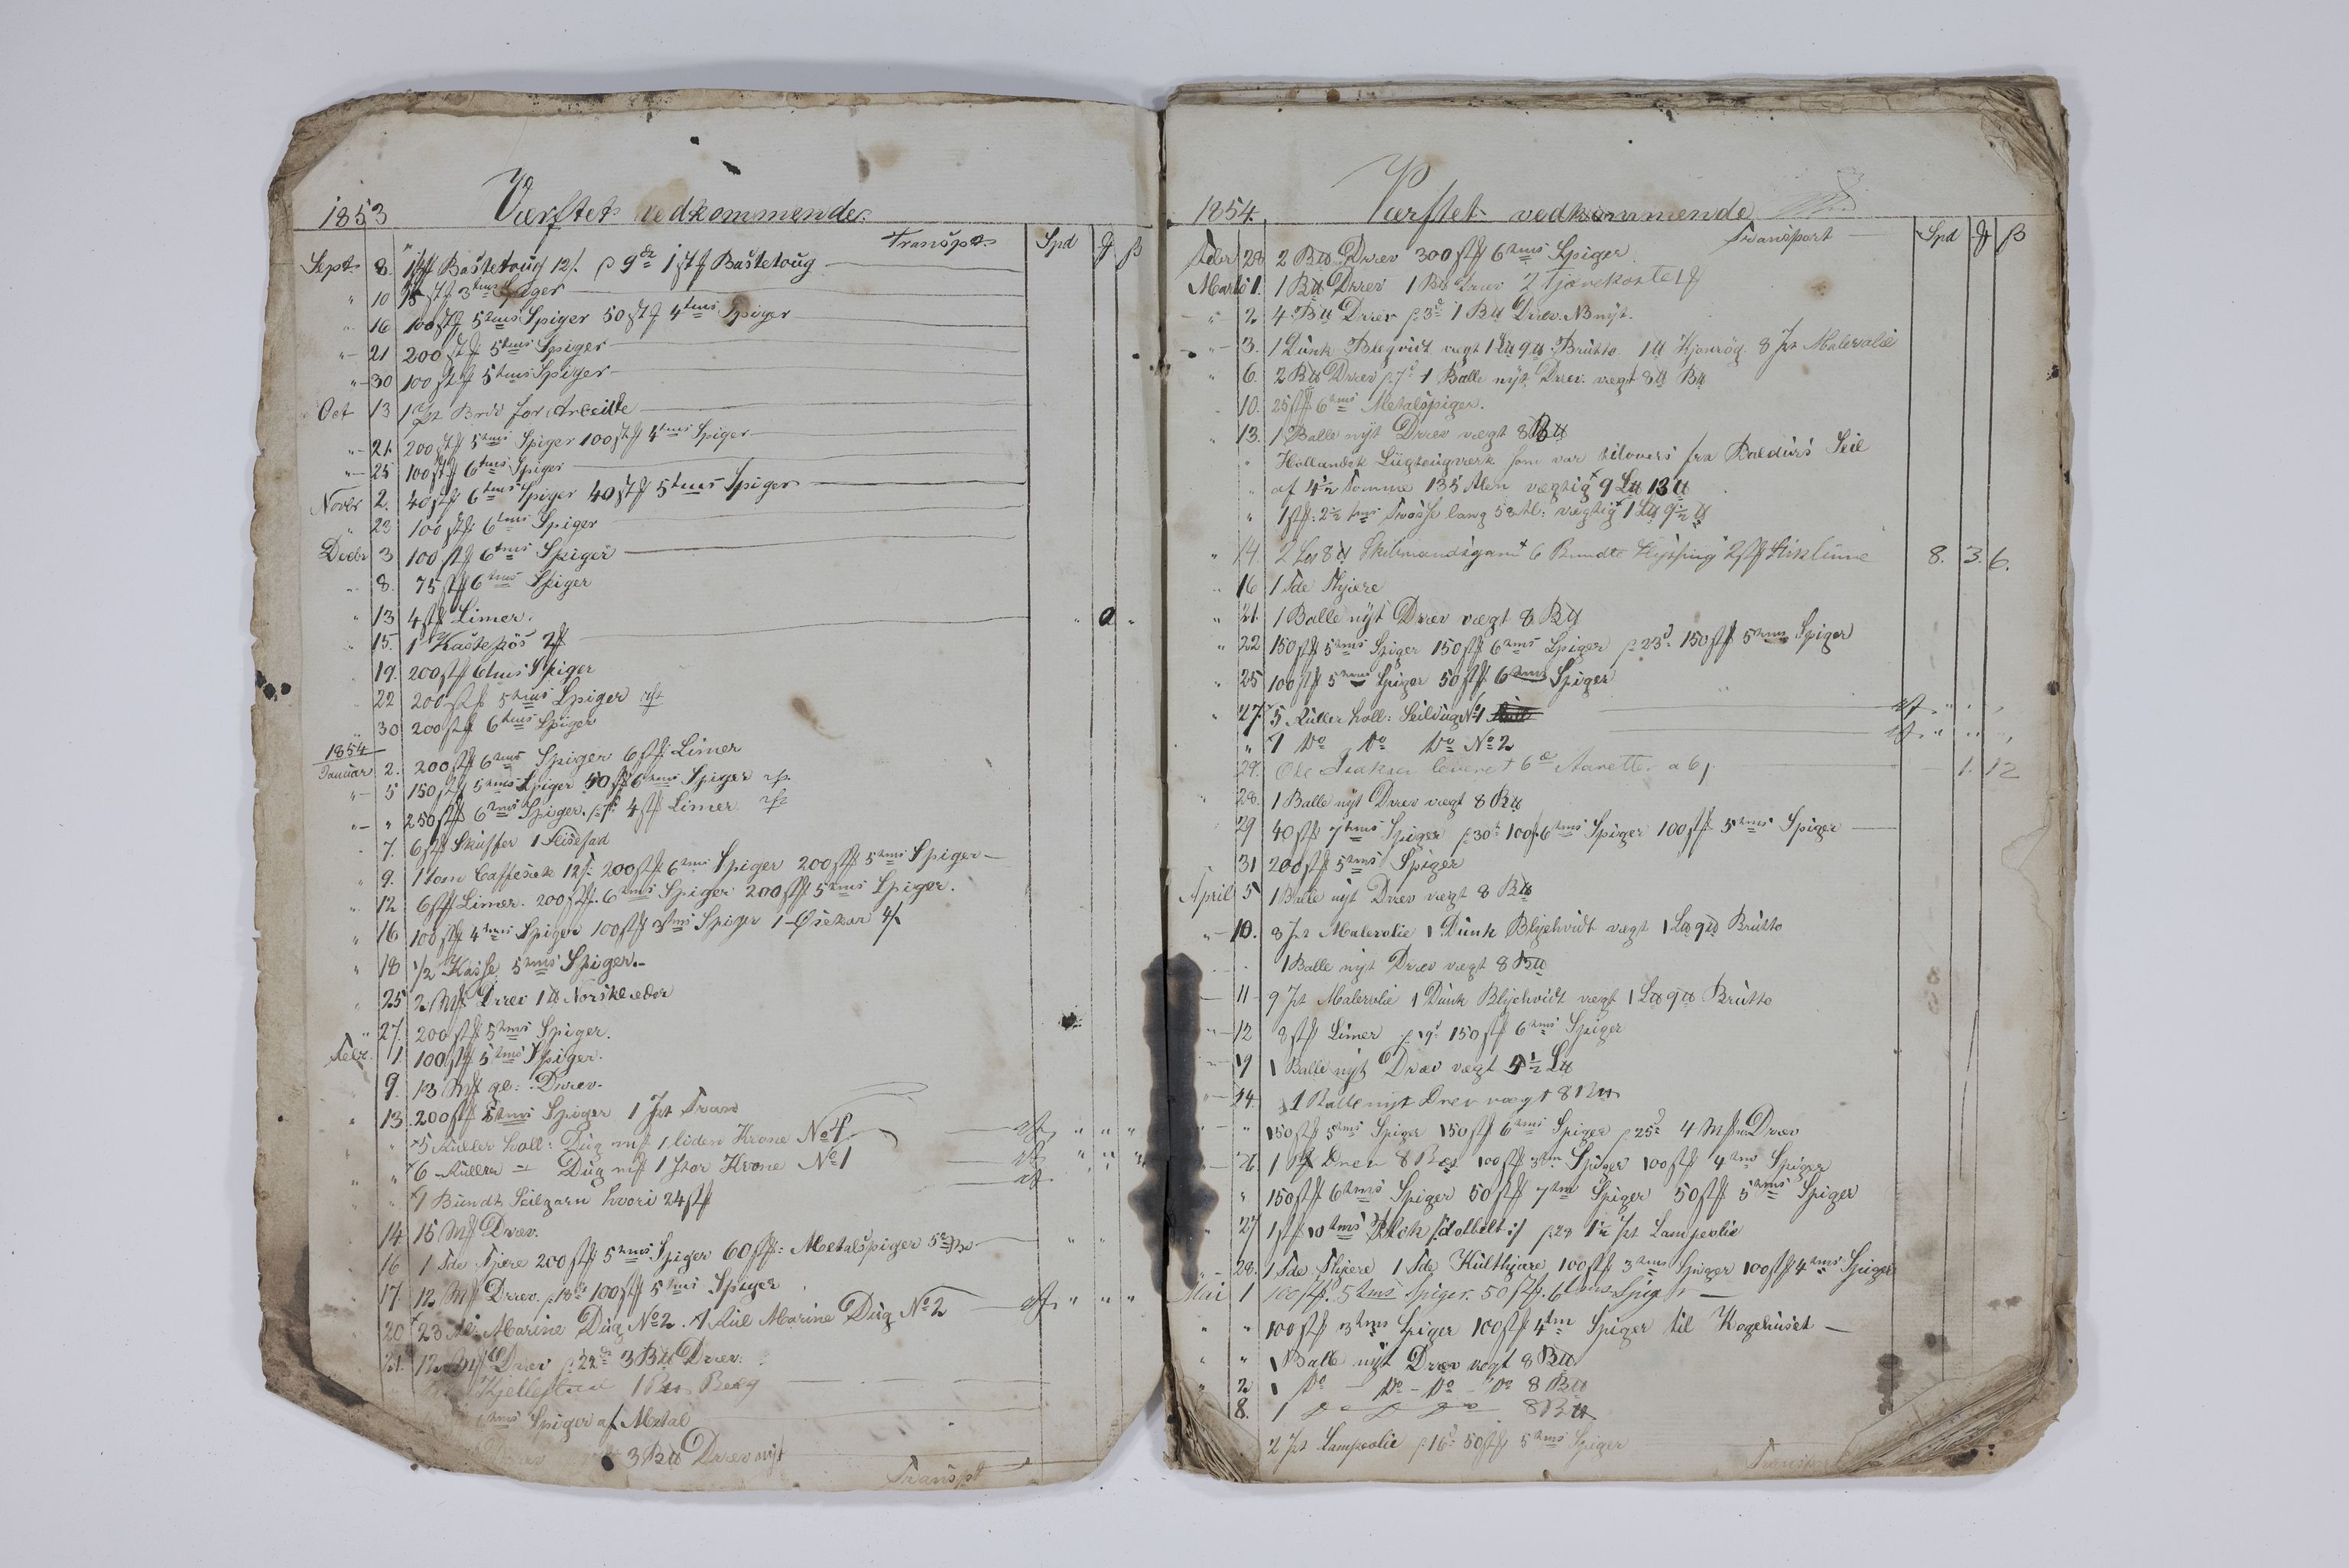 1853 Værftet vedkommende.
Transpt. Spd
Sept. 8. 1 stk Bastetoug 12/. p 9de 1 stk Bastetoug
" 10 15 stk 3tms Spiger
" 16 100 stk 5tms Spiger 50 stk 4tms Spiger
" 21 200 stk 5tms Spiger
" 30 100 stk 5tms Spiger
Oct 13 1 Brød for Arbeidte
" 21. 200 stk 5tms Spiger 100 stk 4tms Spiger
" 25 100 stk 6tms Spiger
Novbr 2. 40 stk 6tms Spiger 40 stk 5tms Spiger
" 23 100 stk 6tms Spiger
Decbr 3 100 stk 6tms Spiger
" 8. 75 stk 6tms Spiger
" 13 4 stk Limer.
" 15. 1
19. 200 stk 6tms Spiger
22 200 stk 5tms Spiger
" 30 200 stk 6tms Spiger
1854
Januar 2. 200 stk 6tms Spiger 6 stk Limer
" 5 150 stk 5tms Spiger 50 stk 6tms Spiger
" " 250 stk 6tms Spiger. 4 stk Limer
7. 6 stk Skuffer 1
" 9. 1 tom Caffesæk 12/: 200 stk 6tms Spiger 200 stk 5tms Spiger
" 12 6 stk Limer. 200 stk 6tms Spiger 200 stk 5tms Spiger.
" 16 100 stk 4tms Spiger 100 stk 3tms Spiger 1 Øsekar
" 18 1/2 Kasse 5tms Spiger.
" 25 2 Drev 1 ℔ Norsk læder
" 27. 200 stk 5tms Spiger.
Febr. 1. 100 stk 5tms Spiger.
9. 13 gl: Drev.
" 13. 200 stk 5tms Spiger 1 Pt Tran
" 5 Ruller holl: Dug 1 liden Krone No 1
" " 6 Ruller Dug 1 stor Krone No 1
" 1 Bundt Seilgarn hvori 24 stk
14 15 Drev.
16 1 Tde Tjere 200 stk 5tms Spiger 60 stk: Metalspiger
17. 12 Drev. p 18de 100 stk 5tms Spiger
20 23 Al: Marine Dug No 2. 1 Rul Marine Dug No 2
21. 12 Drev p 22de 3 B℔ Drev.
Kjellestad 1 Berg
6tms Spiger af Metal
Drev 3 B℔ Drev nyt
Transpt
1854. Værftet vedkommende
Transport Spd
Febr 28 2 B℔ Drev 300 stk 6tms Spiger
Marts 1. 1 B℔ Drev 1 B℔ Drev 2 Tjærekoste
" 2 4 B℔ Drev p 3d 1 B℔ Drev. NB nyt.
" 3. 1 Dunk Blyhvidt vægt 1 L℔ 9 ℔ Brutto 1 ℔ Kjønrøg 8 Pt Maleralie
" 6. 2 B℔ Drev p 7d 1 Balle nyt Drev vægt 8 B℔
10. 25 stk 6tms Metalspiger.
" 13. 1 Balle nyt Drev vægt 8 B℔
" Hollandsk som var tilovers fra Baldurs Seil
" af 4 1/2 Tomme 135 Alen vægtig 9 L℔ 13 ℔
" 1 stk: 2 1/2 tms Trosse lang 58 Al: vægtig 1 L℔ 9 1/2 ℔
" 14. 2 Skibmandsgarn 6 Bundte Hyssing 2 stk 8. 3. 6.
" 16 1 Tde Thjere
" 21. 1 Balle nyt Drev vægt 8 B℔
" 22 150 stk 5tms Spiger 150 stk 6tms Spiger p 23d 150 stk 5tms Spiger
" 25 100 stk 5tms Spiger 50 stk 6tms Spiger
" 27. 5 Ruller holl: Seildug No 1
" 1 Do Do Do No 2
29. Ole Isaksen leveret 6 a 6/. 1. 12
28. 1 Balle nyt Drev vægt 8 B℔
29 40 stk 7tms Spiger p 30d 100 stk 6tms Spiger 100 stk 5tms Spiger
31 200 stk 5tms Spiger
April 5 1 Balle nyt Drev vægt 8 B℔
" 10. 8 Pt Maleralie 1 Dunk Blyehvidt vægt 1 L℔ 9 ℔ Brutto
1 Balle nyt Drev vægt 8 B℔
11 9 Pt Maleralie 1 Dunk Blyehvidt vægt 1 L℔ 9 ℔ Brutto
" 12 8 stk Limer p 19d 150 stk 6tms Spiger
19 1 Balle nyt Drev vægt 4 1/2 L℔
24. 1 Balle nyt Drev vægt 8 B℔
" 150 stk 5tms Spiger 150 stk 6tms Spiger p 25d 4 Drev
26 1 Drev 8 B℔ 100 stk 3tm Spiger 100 stk 4tms Spiger
" 150 stk 6tms Spiger 50 stk 7tm Spiger 50 stk 5tms Spiger
27 1 stk 10tms Blok /dolbelt:/ p 28 1 1/2 Pt Lampeolie
28. 1 Tde Thjere 1 Tde Kulthjære 100 stk 3tms Spiger 100 stk 4tms Spiger
Mai 1 100 stk. 5tms Spiger. 50 stk. 6tms Spiger
" " 100 stk 3tms Spiger 100 stk 4tm Spiger til Kogehuset
" " 1 Balle nyt Drev vægt 8 B℔
" 2 1 Do - Do - Do - Do 8 B℔
8. 1 8 B℔
2 Pt Lampeolie p 16d 50 stk 5tms Spiger
Transport